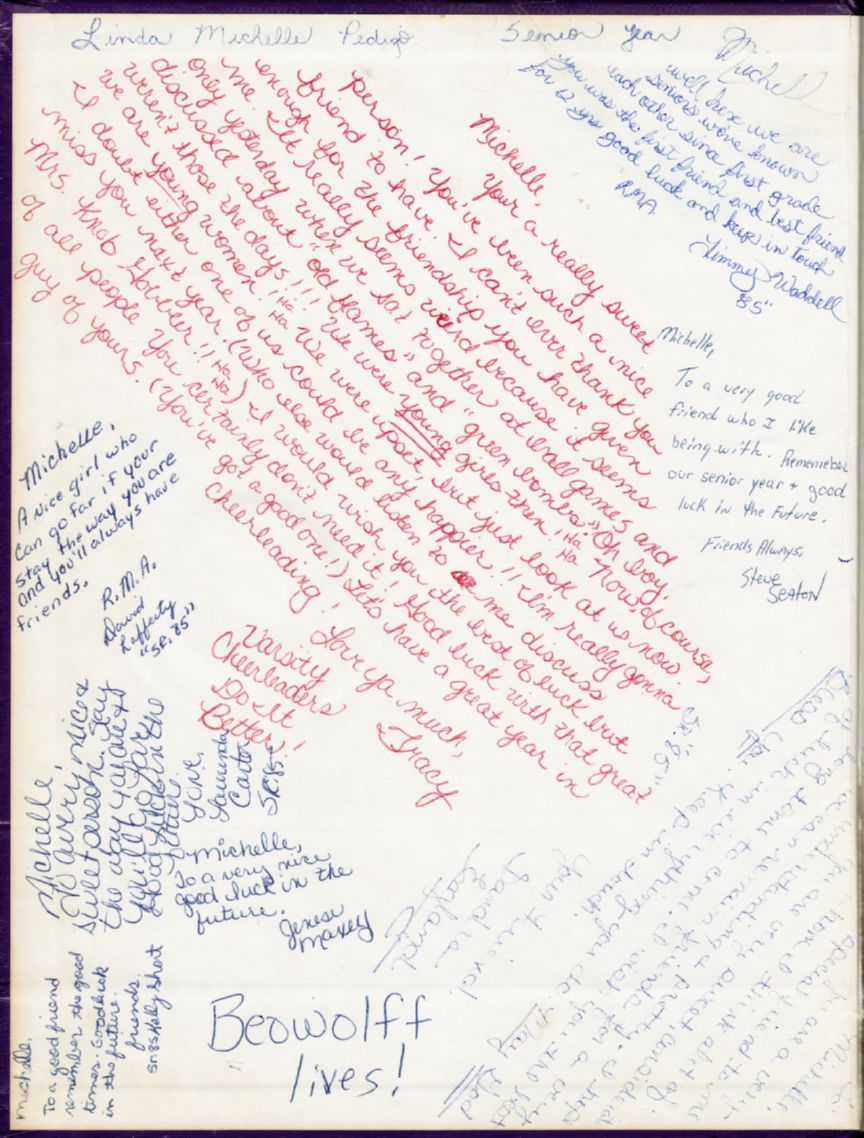 Linda Michelle Pedigo Senior Year
Michell
well here we are
seniors we've known
each other since first grade
you was the first friend and best friend
for 12 yrs good luck and keep in touch
RMA
Timmy Waddell
85"
Michelle,
Your a really sweet
person! You've been such a nice
friend to have. I can't ever thank you
enough for the friendship you have given
me. It really seems weird because it seems
only yesterday when we sat together at ball games and
discussed about "old flames" and "green bombs." Oh boy,
weren't those the days!!! We were young girls then! Ha Ha Now of course,
we are young women! Ha Ha We were upset, but just look at us now.
I doubt either one of us could be any happier!! I'm really gonna
miss you next year. (Who else would listen to me discuss
Mrs. Knob !! Ha Ha) I would wish you the best of luck but
of all people you certainly don't need it! Good luck with that great
guy of yours. (You've got a good one!) Let's have a great year in
Cheerleading! Love ya much,
Tracy
Varsity
Cheerleaders
Do It
Better!
Michelle,
To a very good
friend who I like
being with. Remember
our senior year + good
luck in the future.
Friends Always,
Steve
Seaton
Michelle,
A nice girl who
can go far if your
stay the way you are
and you'll always have
friends.
R.M.A.
David
Lafferty
"SR. 85"
Michelle,
To a very nice &
sweet person. Stay
the way you are &
you'll go far.
Good luck in the
future.
Love,
Laurinda
Carter
SR. 85
Michelle,
To a very nice
good luck in the
future.
Jenese
Maxey
Michelle,
To a good friend
remember the good
times. Good luck
in the future.
friends,
Sr. 85 Kelly Short
Beowolff
lives!
Michelle,
You are a very
special friend to me
I think alot of
you are very sweet, considerate
understanding & pretty. I hope
we can remain friends for a very
long time to come. I wish you the best
of luck in everything you do. May God
Bless
Keep in touch.
Your friend
Sandra
SR. "85"